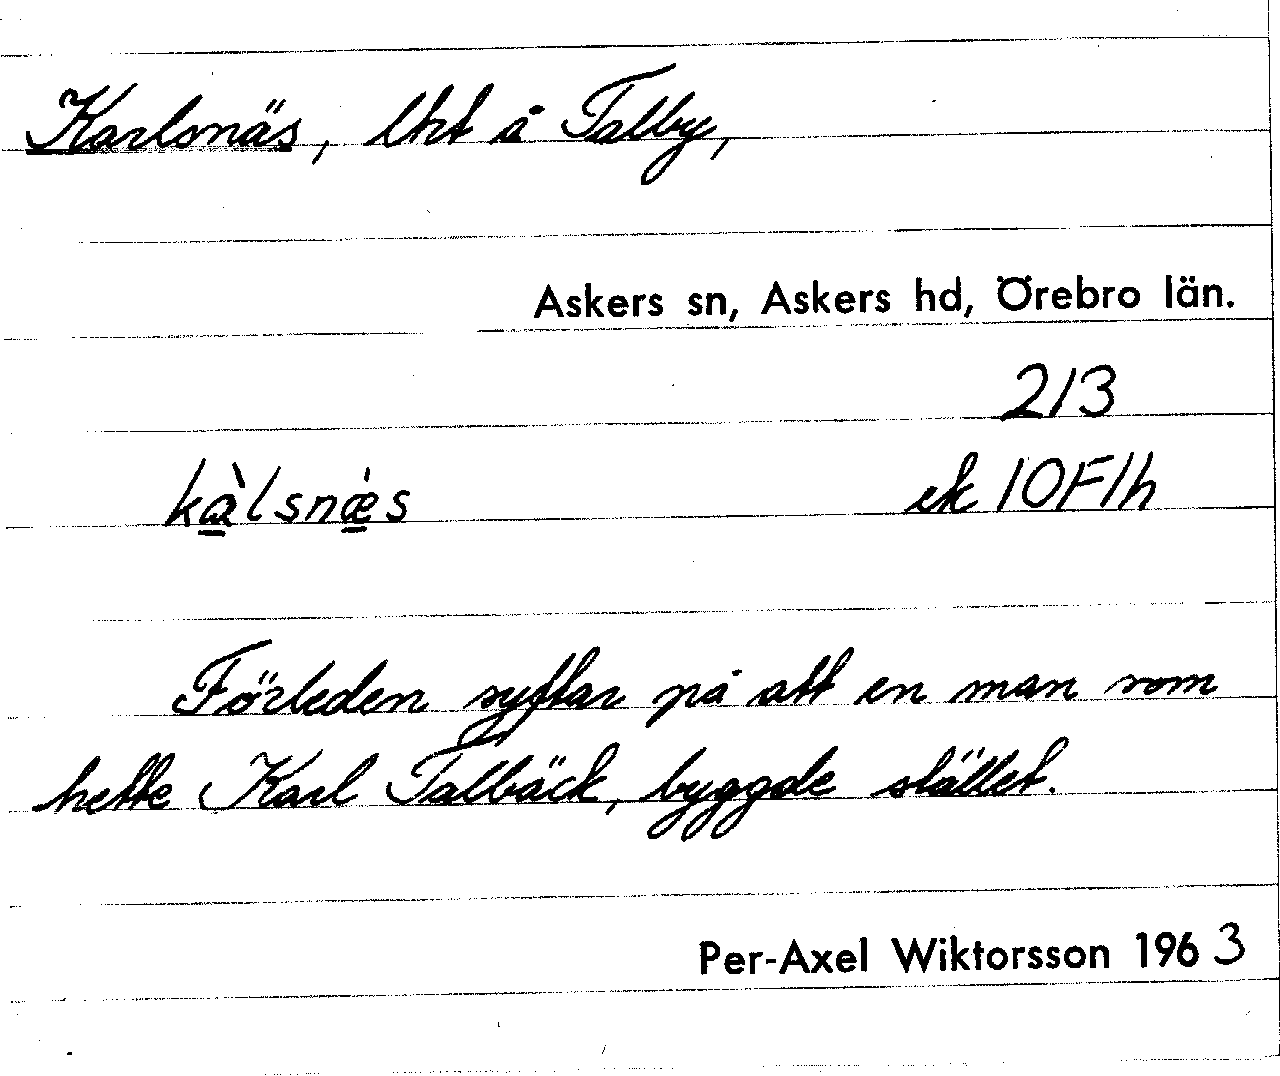 Karlsnäs, lht å Talby,
Askers sn, Askers hd, Örebro län.
213
kàlsnǽs ek 10F1h
Förleden syftar på att en man som
hette Karl Talbäck, byggde stället.
Per-Axel Wiktorsson 1963